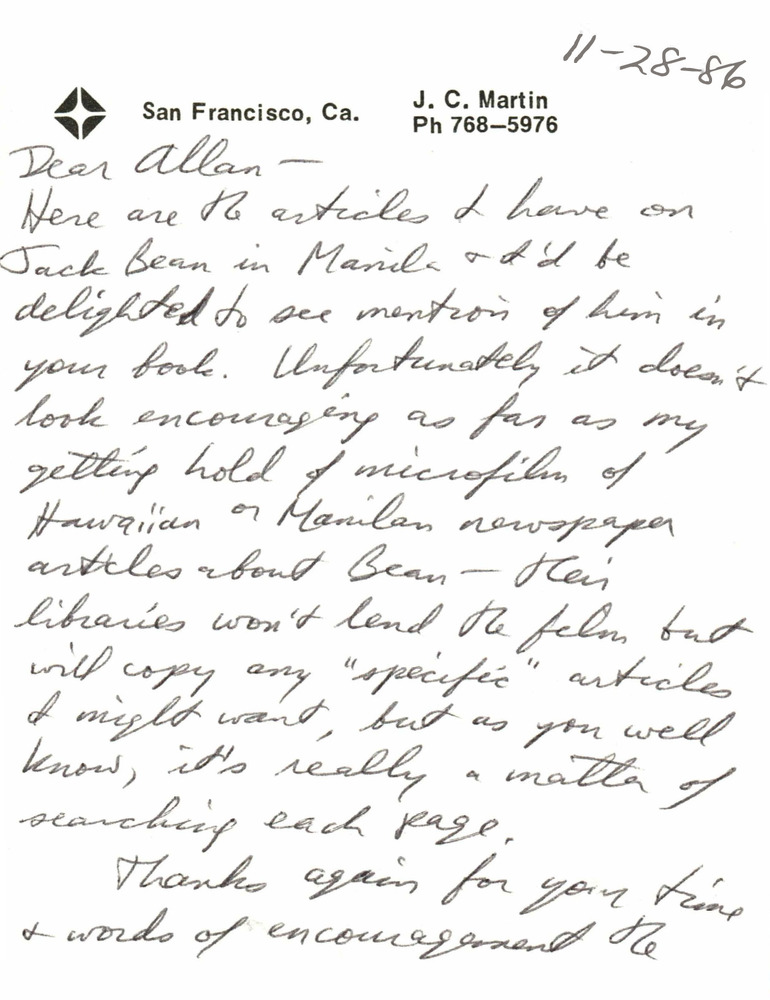 11-28-86
San Francisco, Ca.
J. C. Martin
Ph 768–5976
Dear Allan —
Here are the articles I have on
Jack Bean in Manila & I'd be
delighted to see mention of him in
your book. Unfortunately it doesn't
look encouraging as far as my
getting hold of microfilm of
Hawaiian or Manilan newspaper
articles about Bean — their
libraries won't lend the film but
will copy any "specific" articles
I might want, but as you well
know, it's really a matter of
searching each page.
Thanks again for your time
& words of encouragement the